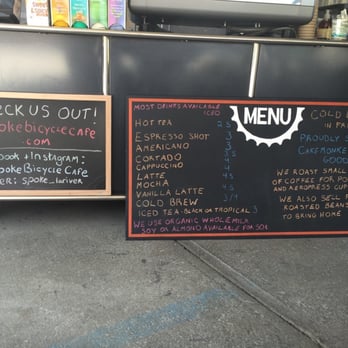 CK US OUT!
okeBicycleCafe
.com
book + Instagram:
okeBicycleCafe
er: spoke_
MOST DRINKS AVAILABLE
ICED
MENU
HOT TEA 2.5
ESPRESSO SHOT 3
AMERICANO 3
CORTADO 3.5
CAPPUCCINO 4
LATTE
MOCHA
VANILLA LATTE
COLD BREW 3/4
ICED TEA - BLACK OR TROPICAL 3
WE USE ORGANIC WHOLE MILK
SOY OR ALMOND AVAILABLE FOR 50¢
COLD
IN
PROUDLY S
CAKEMONKE
GOOD
WE ROAST SMALL
OF COFFEE FOR PO
AND AEROPRESS CUP
WE ALSO SELL F
ROASTED BEANS
TO BRING HOME